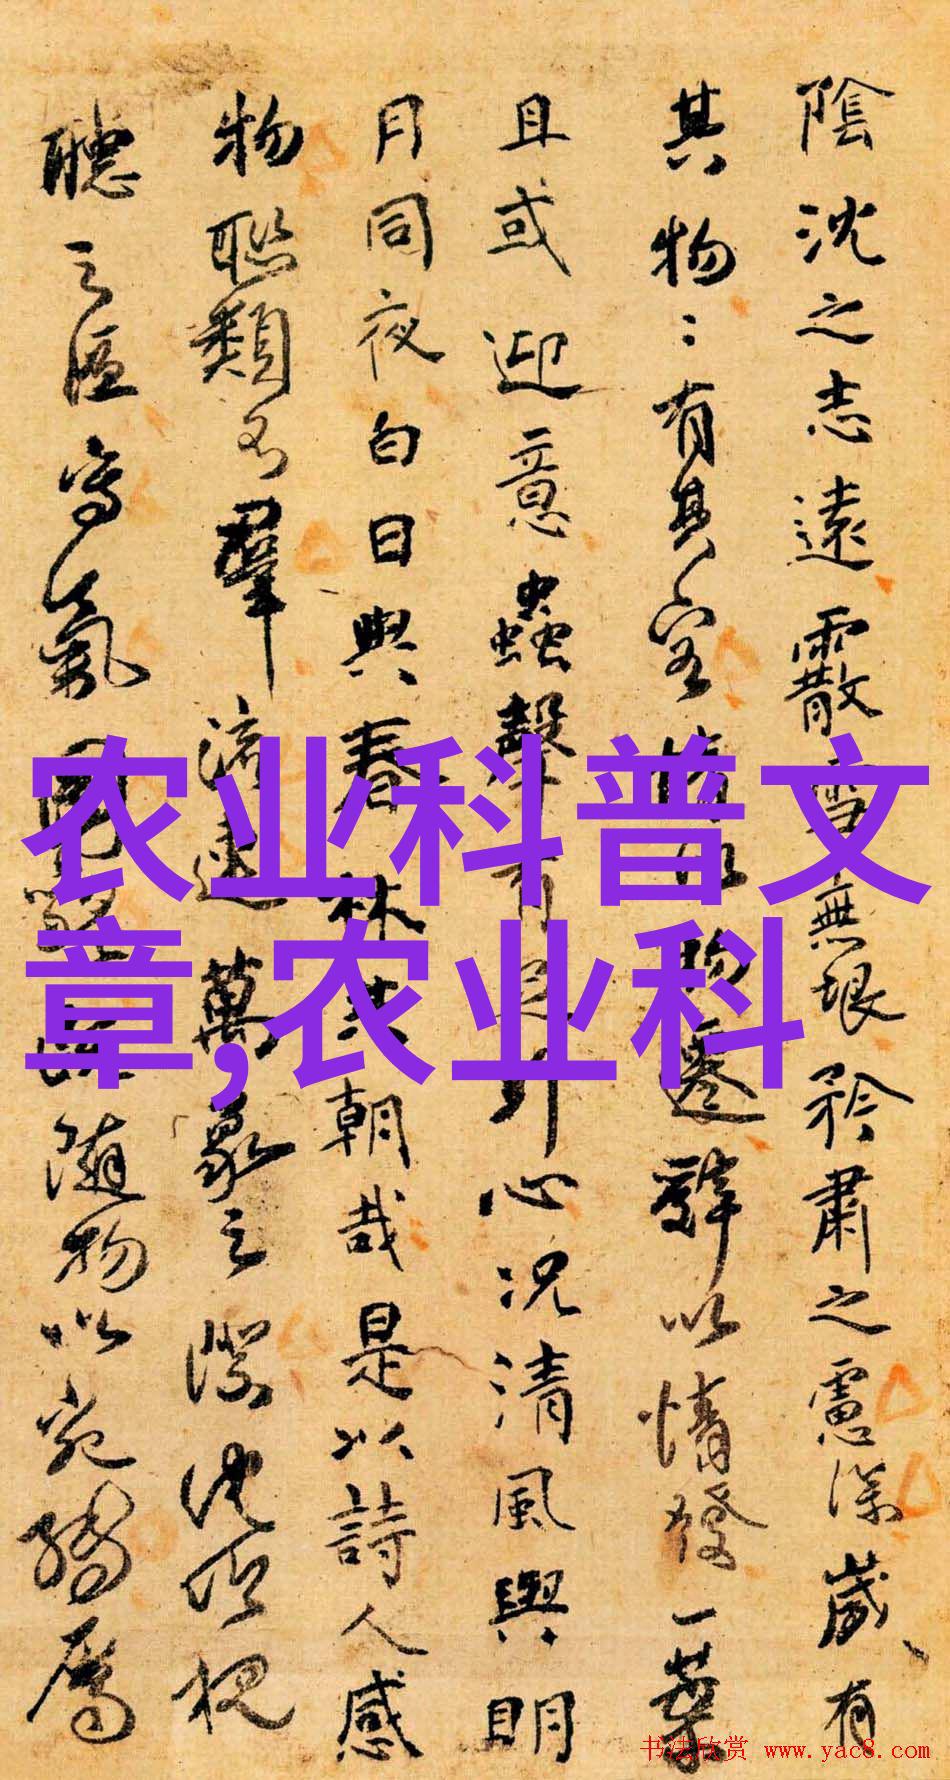 陰沈之志遠霰雪無垠矜肅之慮深歲有
其物物有其容情以物遷辭以情發一葉
且或迎意蟲聲有足引心況清風與明
月同夜白日與春林共朝哉是以詩人感
物聯類不窮流連萬象之際沈吟視
聽之區寫氣圖貌既隨物以宛轉屬
农业科普文
章,农业科
书法欣赏 www.yac8.com